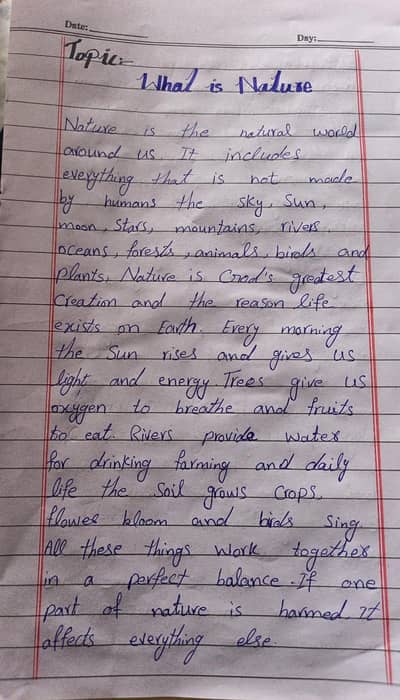 Date:
Day:
Topic:
What is Nature
Nature is the natural world
around us. It includes
everything that is not made
by humans the sky, Sun,
moon, Stars, mountains, rivers
oceans, forests, animals, birds and
Plants, Nature is God's greatest
Creation and the reason life
exists on Earth. Every morning
the Sun rises and gives us
light and energy. Trees give us
oxygen to breathe and fruits
to eat. Rivers provide water
for drinking farming and daily
life the soil grows crops,
flowes bloom and birds sing.
All these things work together
in a perfect balance. If one
part of nature is harmed it
affects everything else.